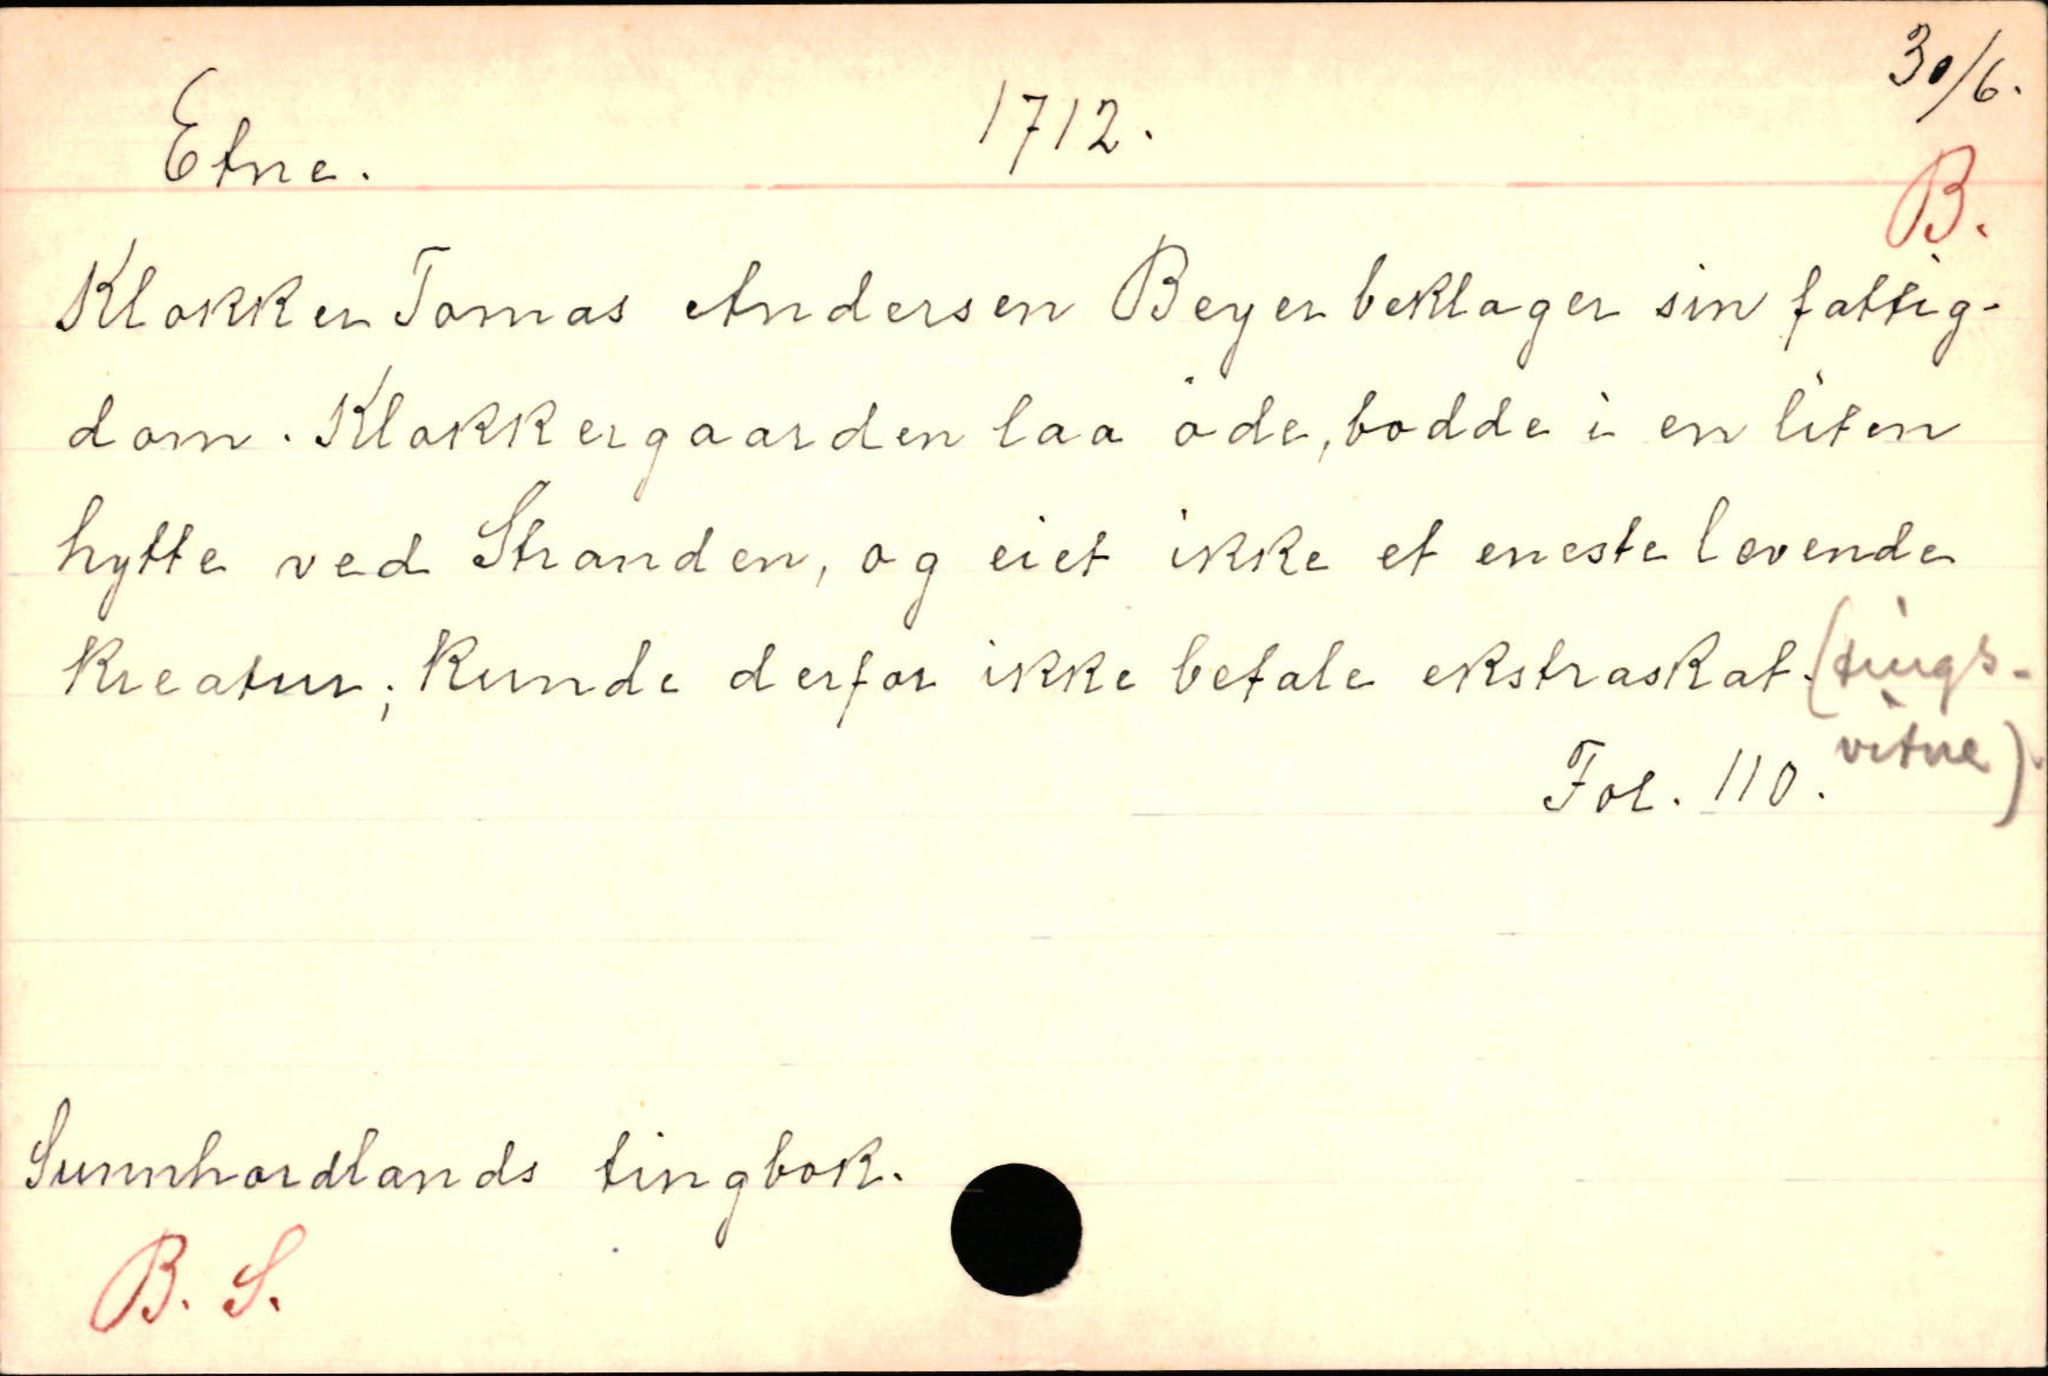 30/6.
Etne. 1712.
B.
Klokker Tomas Andersen Beyer beklager sin fattig-
dom. Klokkergaarden laa öde, bodde i en liten
hytte ved Stranden, og eiet ikke et eneste levende
kreatur; kunde derfor ikke betale ekstraskat. (tings-
vitne).
Fol. 110.
Sunnhordlands tingbok.
B. S.